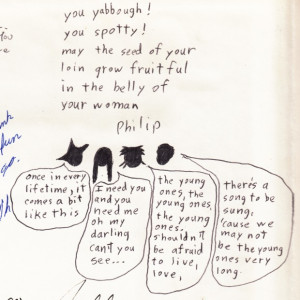 you yabbough!
you spotty!
may the seed of your
loin grow fruitful
in the belly of
your woman
Philip
once in every
lifetime, it
comes a bit
like this
I need you
and you
need me
oh my
darling
can't you
see...
the young
ones, the
young ones,
the young
ones.
shouldn't
be afraid
to live,
love,
there's a
song to be
sung,
'cause we
may not
be the young
ones very
long.